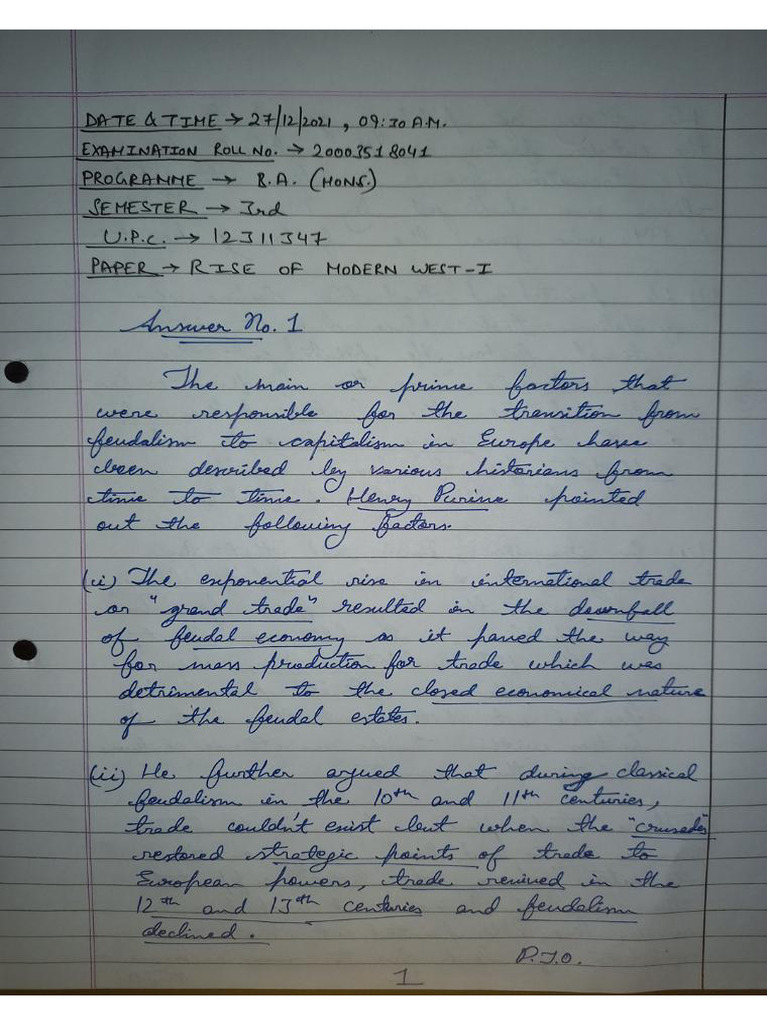 DATE & TIME → 27/12/2021, 09:30 A.M.
EXAMINATION ROLL NO. → 20003518041
PROGRAMME → B.A. (HONS.)
SEMESTER → 3rd
U.P.C. → 12311347
PAPER → RISE OF MODERN WEST-I
Answer No. 1
The main or prime factors that
were responsible for the transition from
feudalism to capitalism in Europe have
been described by various historians from
time to time. Henry Purine pointed
out the following factors.
(i) The exponential rise in international trade
or "grand trade" resulted in the downfall
of feudal economy as it paved the way
for mass production for trade which was
detrimental to the closed economical nature
of the feudal estates.
(ii) He further argued that during classical
feudalism in the 10th and 11th centuries,
trade couldn't exist but when the "crusades"
restored strategic points of trade to
European powers, trade revived in the
12th and 13th centuries and feudalism
declined.
P.T.O.
1